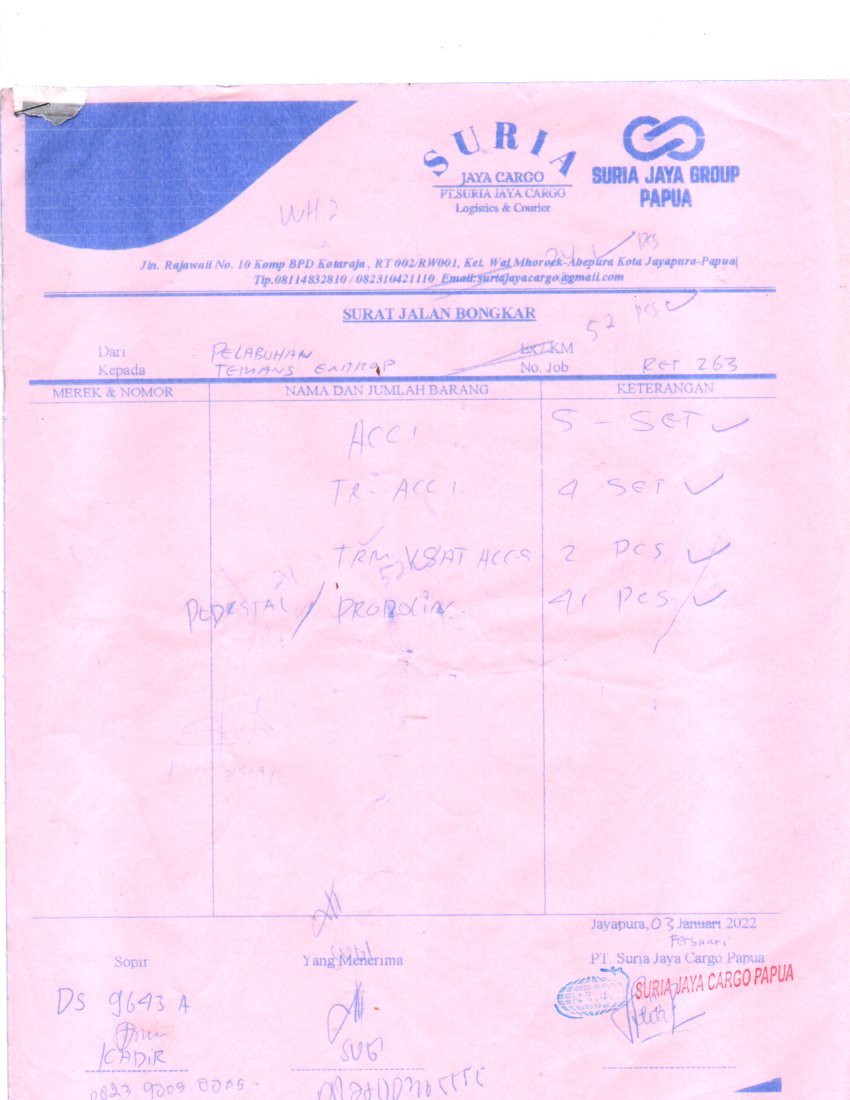 SURIA
JAYA CARGO
PT.SURIA JAYA CARGO
Logistics & Courier
SURIA JAYA GROUP
PAPUA
WH.2
24 pcs
Jln. Rajawali No. 10 Komp BPD Kotaraja , RT 002/RW001, Kel. Wai Mhorock-Abepura Kota Jayapura-Papua
Tlp.08114832810 / 082310421110 Email:suriajayacargo@gmail.com
SURAT JALAN BONGKAR
52 pcs
Dari : PELABUHAN
Ex / KM
Kepada : TEMANS ENTROP
No. Job : REF 263
MEREK & NOMOR NAMA DAN JUMLAH BARANG KETERANGAN
ACC 1 5 - SET
TR - ACC 1 4 SET
TRM ACCS 2 PCS
24 52
PEDESTAL / 41 PCS
Jayapura, 03 Januari 2022
Februari
Sopir Yang Menerima PT. Suria Jaya Cargo Papua
SURIA JAYA CARGO PAPUA
DS 9643 A
KADIR